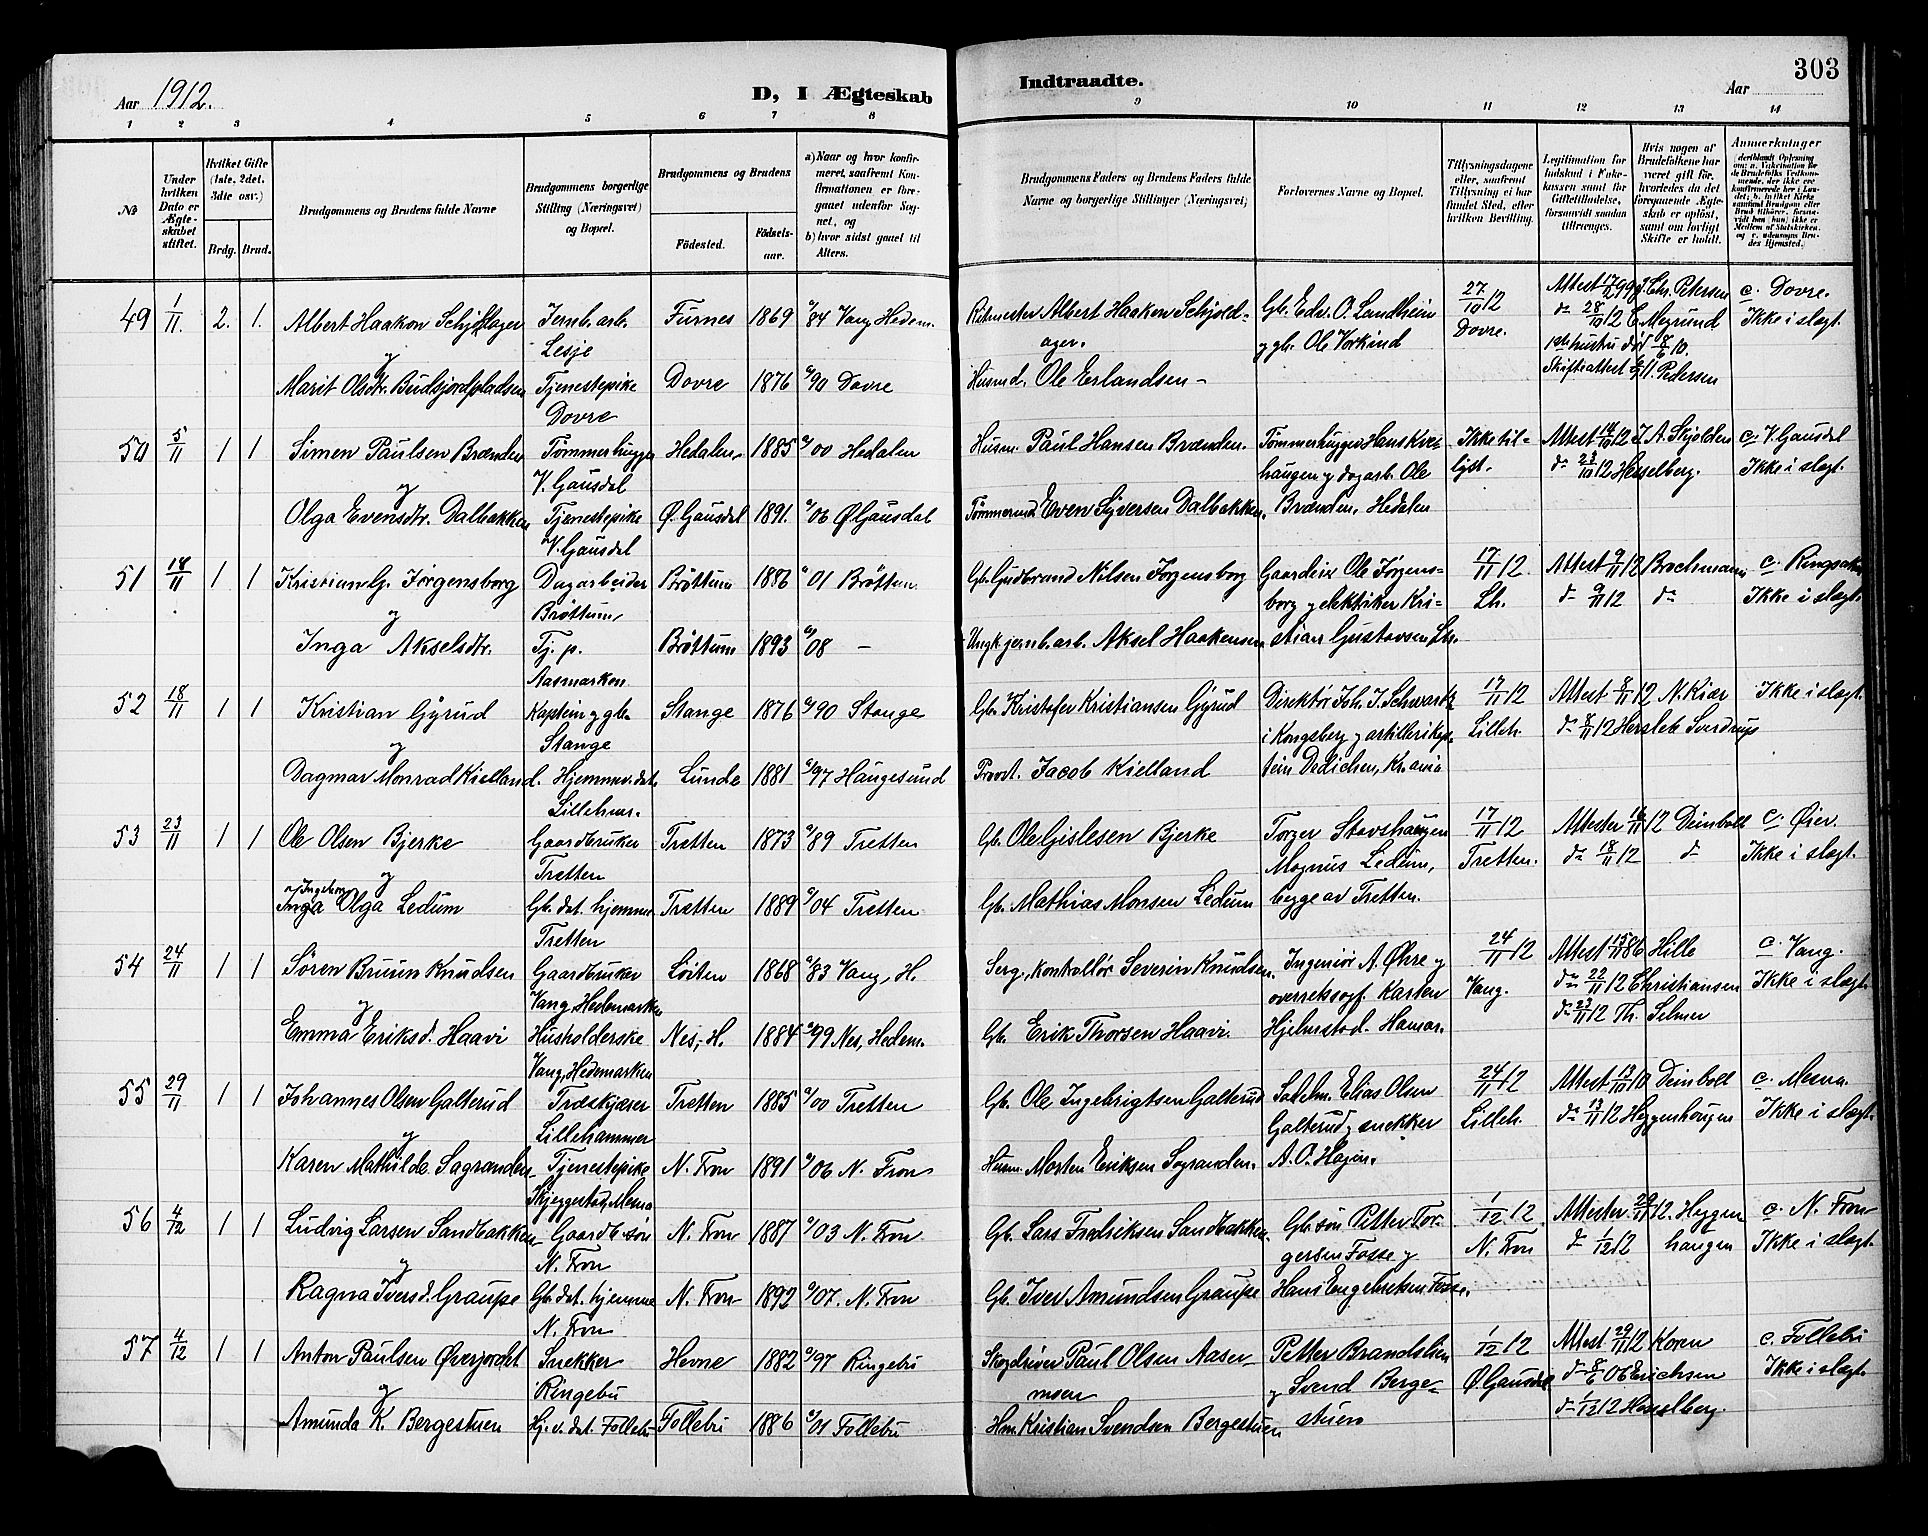 Aar 1912. D, I Ægteskab
Indtraadte. Aar 303
1 2 3 4 5 6 7 8 9 10 11 12 13 14
No
Under hvilken Dato er Ægteskabet stiftet.
Hvilket Gifte (1ste, 2det, 3dte osv.)
Brdg. Brud.
Brudgommens og Brudens fulde Navne
Brudgommens borgerlige Stilling (Næringsvei) og Bopæl.
Brudgommens og Brudens
Födested. Födselsaar.
a) Naar og hvor konfirmeret, saafremt Konfirmationen er foregaaet udenfor Sognet, og
b) hvor sidst gaaet til Alters.
Brudgommens Faders og Brudens Faders fulde Navne og borgerlige Stillinger (Næringsvei)
Forlovernes Navne og Bopæl.
Tillysningsdagene eller, saafremt Tillysning ei har fundet Sted, efter hvilken Bevilling.
Legitimation for Indskud i Enkekassen samt for Giftetilladelse, forsaavidt saadan tiltrænges.
Hvis nogen af Brudefolkene har været gift før, hvorledes da det foregaaende Ægteskab er opløst, samt om lovligt Skifte er holdt.
Anmærkninger
49 1/11. 2. 1. Albert Haakon Schjoldager Jernb. arb. Furnes 1869 /84 Vang Hedem. Ritmester Albert Haakon Schjold- Gb. Edv. O. Landheim 27/10 12 Attest Chr. Petersen c. Dovre.
og Lesje ager. og gb. Ole Vorkind Dovre. do 28/10 12 Ikke i slegt.
Marit Olsdtr. Budsjordpladsen Tjenestepike Dovre 1876 /90 Dovre Husmd. Ole Erlandsen - Skifteattest Pedersen
Dovre
50 5/11 1 1 Simen Paulsen Brænden Tømmerhugger Hedalen 1885 /00 Hedalen Husm. Paul Hansen Brænden. Tømmerhugger Hans Kvi- Ikke til- Attest 14/10 12 J. A. Skjolden c. V. Gausdal
og V. Gausdal haugen og dagarb. Ole lyst. do 23/10 12 Hesselberg. Ikke i slegt.
Olga Evensdtr. Dalbakken Tjenestepike Ø. Gausdal 1891. /06 Ø Gausdal Even Syversen Dalbakken. Brænden, Hedalen
V. Gausdal
51 18/11 1 1 Kristian G. Jørgensborg Dagarbeider Brøttum 1886 /01 Brøttum Gb. Gudbrand Nilsen Jørgensborg Gaardeier Ole Jørgens- 17/11 12. Attest 9/11 12 Brochmann c. Ringsaker
og Brøttum borg og elektriker Kri- Lh. do 9/11 12 do Ikke i slegt.
Inga Akselsdtr. Tj. p. Brøttum 1893 /08 - Ungk. jernb. arb. Aksel Haakensen stian Gustavsen Lhr.
Aasmarken
52 18/11 1 1 Kristian Gyrud Kaptein og gb. Stange 1876 /90 Stange Gb. Kristofer Kristiansen Gyrud Direktør Joh. J. Schwartz 17/11 12 Attest 8/11 12 N. Kiær Ikke i slegt.
og Stange i Kongsberg og artillerikap- Lilleh. do 8/11 12 Hersleb Sverdrup
Dagmar Monrad Kielland. Hjemmev. dat. Lunde 1881 /97 Haugesund Provst. Jacob Kielland tein Dedichen, Kr.ania
Lilleham.
53 23/11 1 1 Ole Olsen Bjerke Gaardbruker Tretten 1873 /89 Tretten Gb. Ole Gislesen Bjerke Torger Stavshaugen 17/11 12 Attester 16/11 12 Deinboll c. Øier.
og Tretten Magnus Ledum, Tretten. do 18/11 12 do Ikke i slegt.
Ingeborg
Inga Olga Ledum Gb. dat. hjemme Tretten 1889 /04 Tretten Gb. Mathias Monsen Ledum begge av Tretten.
Tretten
54 24/11 1 1 Søren Bruun Knudsen Gaardbruker Løiten 1868 /83 Vang, H. Serg., kontrollør Severin Knudsen. Ingeniør A. Øhre og 24/11 12 Attest 15/11 86 Hille c. Vang.
og Vang, Hedemarken overretssagf. Karsten Vang. do 22/11 12 Christiansen Ikke i slegt.
Emma Eriksd. Haavi Husholderske Nes, H. 1884 /99 Nes, Hedem. Gb. Erik Thorsen Haavi. Hjelmstad. Hamar. do 23/11 12 Th. Selmer
Vang, Hedemarken
55 29/11 1 1 Johannes Olsen Galterud Træskjærer Tretten 1885 /00 Tretten Gb. Ole Ingebrigtsen Galterud Sadelm. Elias Olsen 24/11 12 Attest 13/10 10 Deinboll c. Mesna.
og Lillehammer Galterud og snekker Lilleh. do 13/11 12 Heggenhougen Ikke i slegt.
Karen Mathilde Sagranden Tjenestepike N. Fron 1891 /06 N. Fron Husm. Morten Eriksen Sagranden. A. O. Hagen.
Skjeggestad, Mesna
56 4/12 1 1 Ludvig Larsen Sandbakken Gaardb. søn N. Fron 1887 /03 N. Fron Gb. Lars Fredriksen Sandbakken Gb. søn Petter Tor- 1/12 12. Attester 29/11 12. Heggen c. N. Fron
og N. Fron gersen Fosse og N. Fron do 1/12 12 haugen Ikke i slegt.
Ragna Iversd. Graupe Gb. dat. hjemme N. Fron 1892 /07. N. Fron Gb. Iver Amundsen Graupe Hans Engebretsen Fosse.
N. Fron
57 4/12 1 1 Anton Paulsen Øverjordet Snekker Hevne 1882 /97 Ringebu Skogdriver Paul Olsen Aaser- Petter Brandslien 1/12 12 Attest 29/11 12 Koren c. Follebu
og Ringebu moen og Svend Berge- Ø. Gausdal do 8/6 06 Erichsen Ikke i slegt.
Amunda K. Bergestuen Hj. v. dat. Follebu Follebu 1886 /01 Follebu Hm. Kristian Svendsen Bergestuen stuen do 1/12 12 Hesselberg.